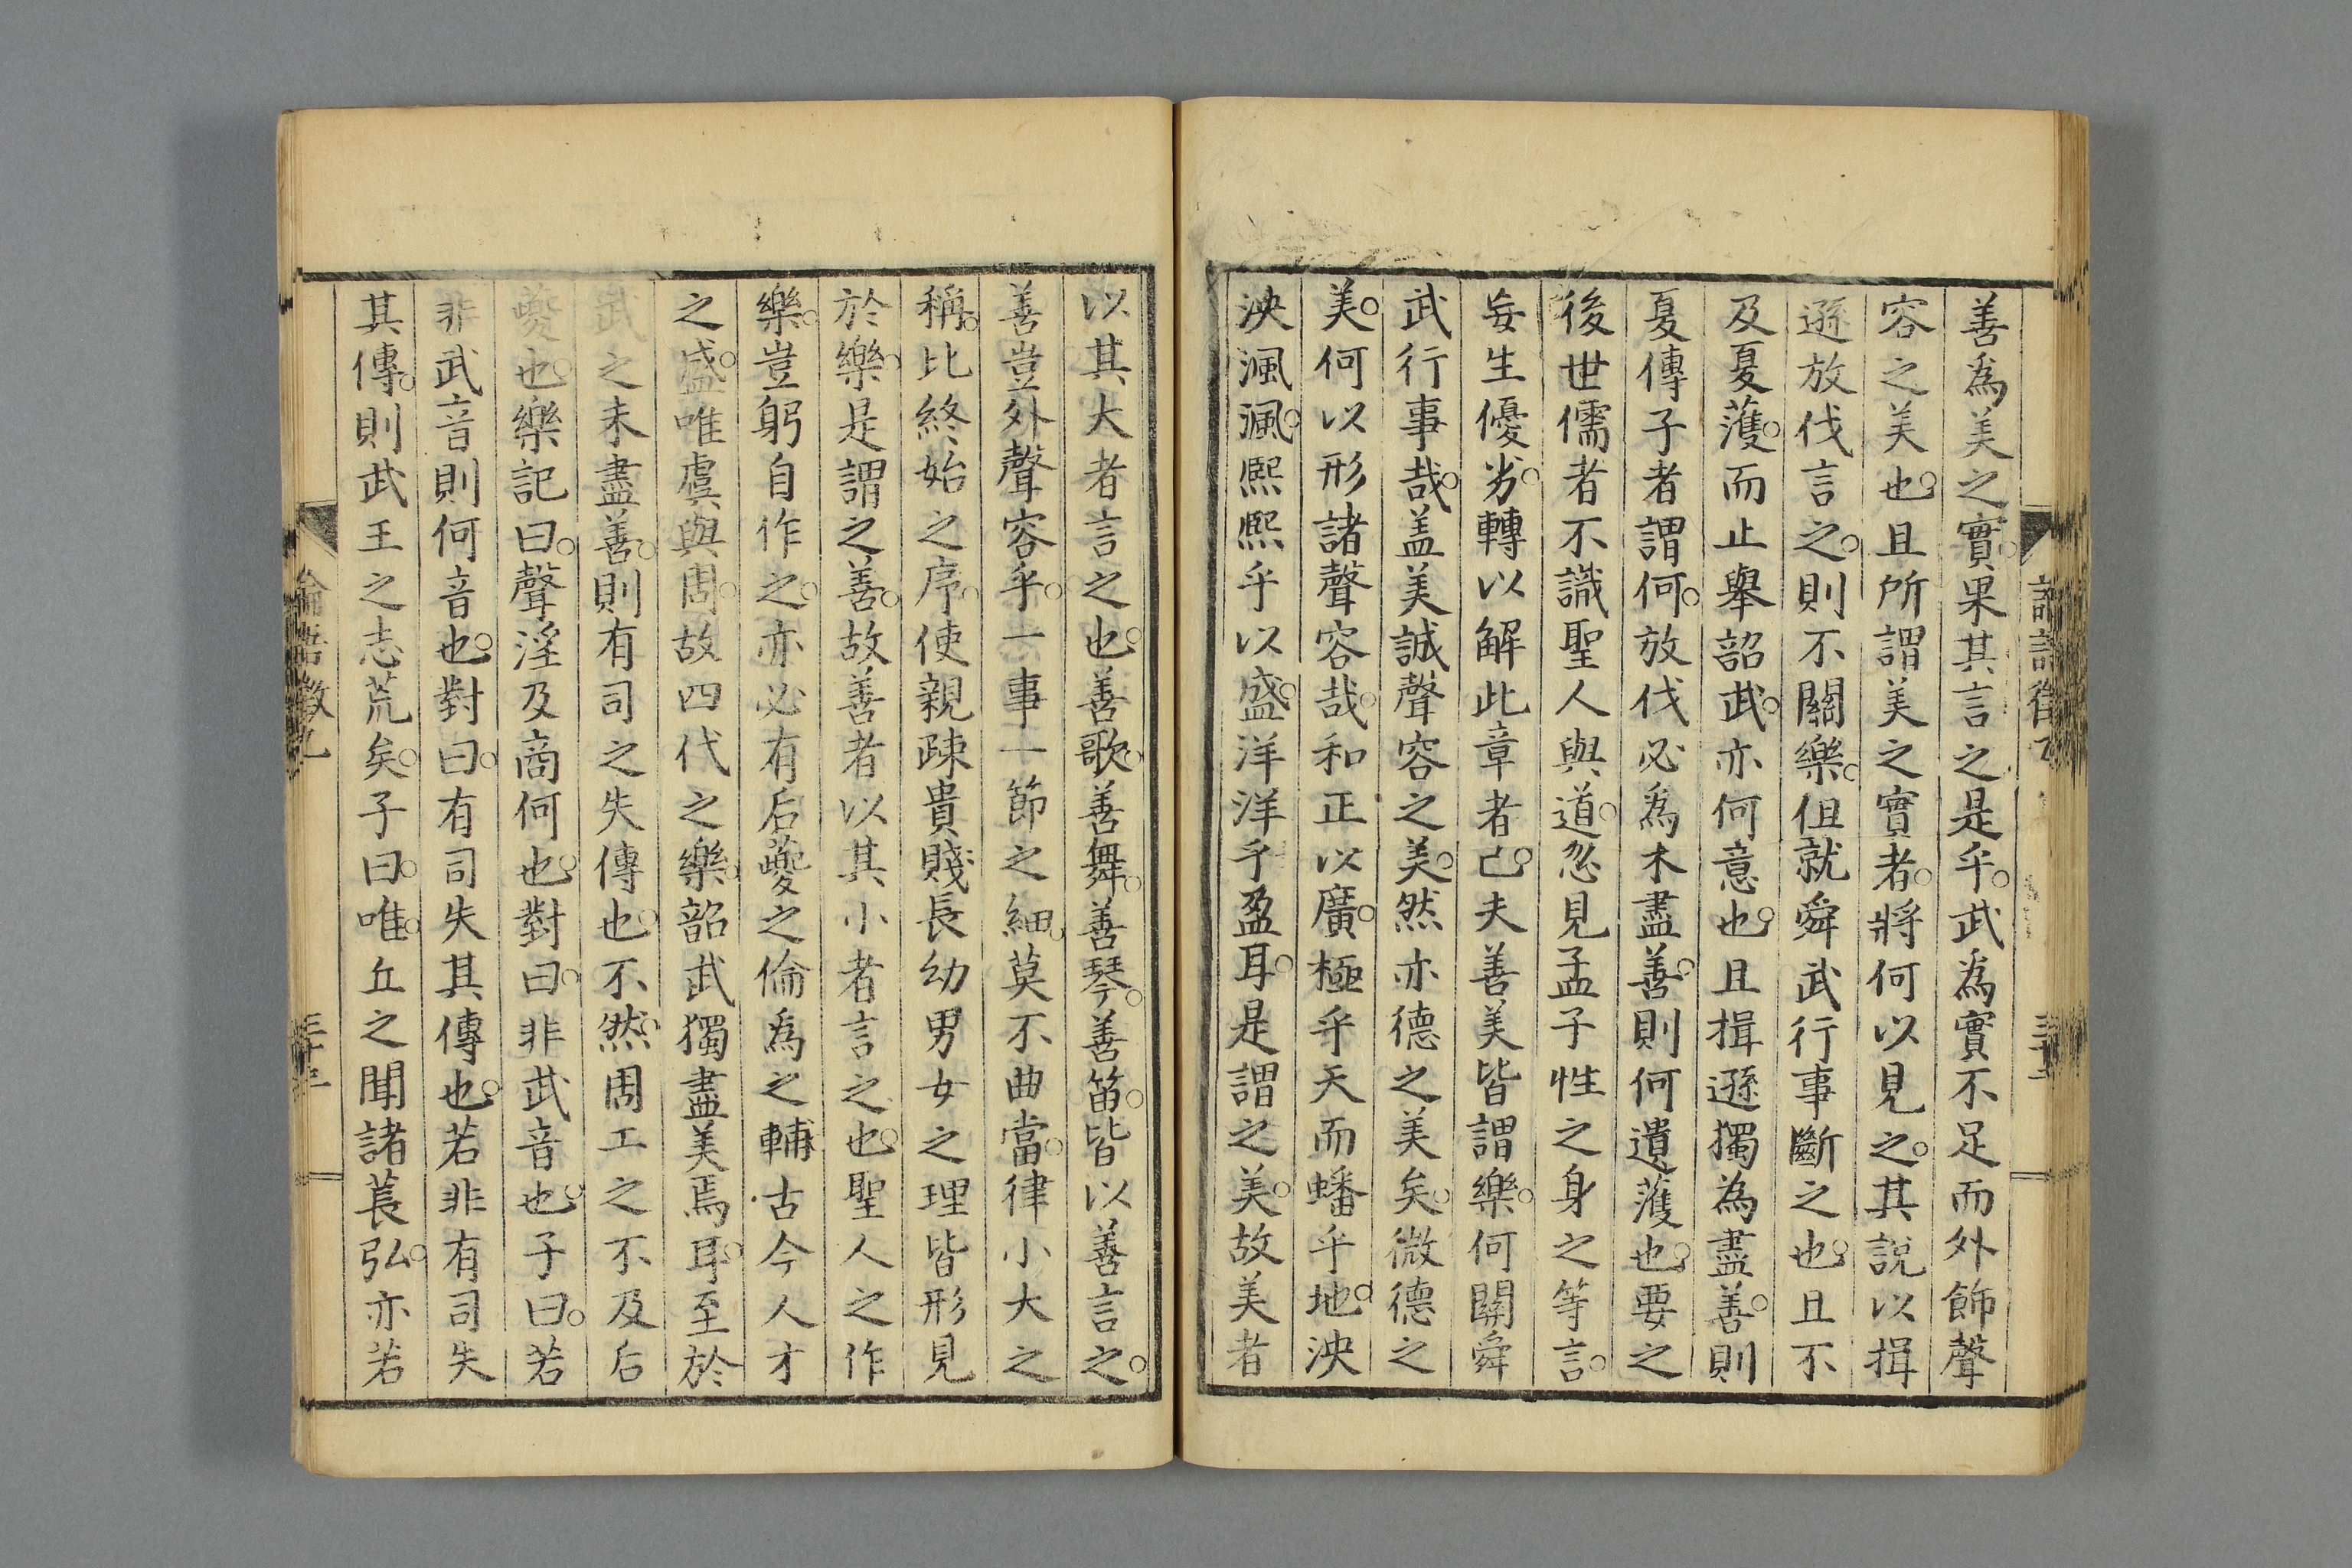 善為美之實果其言之是乎。武為實不足而外飾聲
容之美也。且所謂美之實者。將何以見之。其說以揖
遜放伐言之。則不關樂。但就舜武行事斷之也。且不
及夏濩。而止舉韶武。亦何意也。且揖遜獨為盡善。則
夏傳子者謂何。放伐必為未盡善。則何遺濩也。要之
後世儒者不識聖人與道。忽見孟子性之身之等言。
妄生優劣。轉以解此章者已。夫善美皆謂樂。何關舜
武行事哉。盖美誠聲容之美。然亦德之美矣。微德之
美。何以形諸聲容哉。和正以廣。極乎天而蟠乎地。泱
泱渢渢。熙熙乎以盛。洋洋乎盈耳。是謂之美。故美者
以其大者言之也。善歌。善舞。善琴。善笛。皆以善言之。
善豈外聲容乎。一事一節之細。莫不曲當。律小大之
稱。比終始之序。使親疎貴賤長幼男女之理皆形見
於樂。是謂之善。故善者以其小者言之也。聖人之作
樂。豈躬自作之。亦必有后夔之倫為之輔。古今人才
之盛。唯虞與周。故四代之樂。韶武獨盡美焉耳。至於
武之未盡善。則有司之失傳也。不然。周工之不及后
夔也。樂記曰。聲淫及商何也。對曰。非武音也。子曰。若
非武音則何音也。對曰。有司失其傳也。若非有司失
其傳。則武王之志荒矣。子曰。唯。丘之聞諸萇弘。亦若
論語徵乙